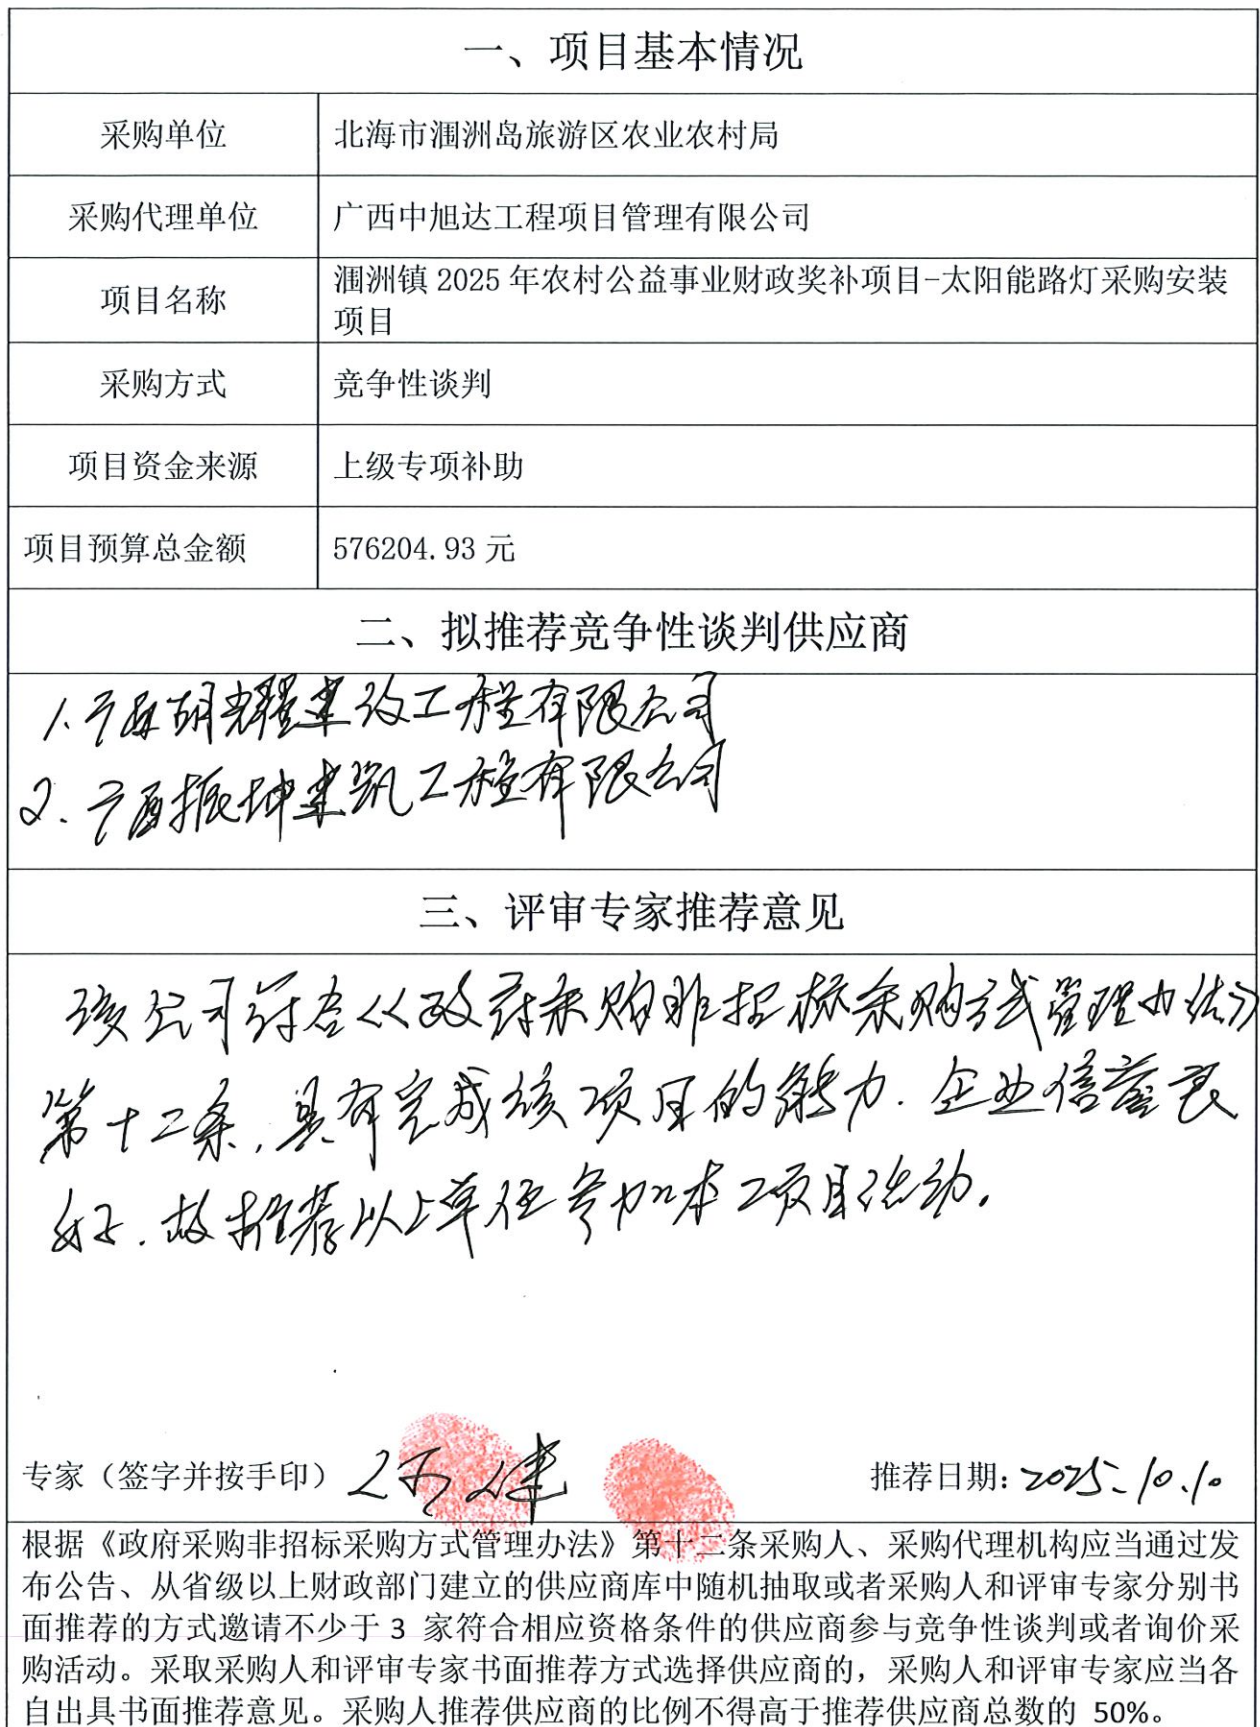 一、项目基本情况
采购单位
北海市涠洲岛旅游区农业农村局
采购代理单位
广西中旭达工程项目管理有限公司
项目名称
涠洲镇 2025 年农村公益事业财政奖补项目-太阳能路灯采购安装
项目
采购方式
竞争性谈判
项目资金来源
上级专项补助
项目预算总金额
576204.93 元
二、拟推荐竞争性谈判供应商
1.广西胡耀建设工程有限公司
2.广西振坤建筑工程有限公司
三、评审专家推荐意见
该公司符合《政府采购非招标采购方式管理办法》
第十二条,具有完成该项目的能力.企业信誉良
好.故推荐以上单位参加本项目活动。
专家（签字并按手印）
推荐日期:2025.10.10
根据《政府采购非招标采购方式管理办法》第十二条采购人、采购代理机构应当通过发
布公告、从省级以上财政部门建立的供应商库中随机抽取或者采购人和评审专家分别书
面推荐的方式邀请不少于 3 家符合相应资格条件的供应商参与竞争性谈判或者询价采
购活动。采取采购人和评审专家书面推荐方式选择供应商的，采购人和评审专家应当各
自出具书面推荐意见。采购人推荐供应商的比例不得高于推荐供应商总数的 50%。